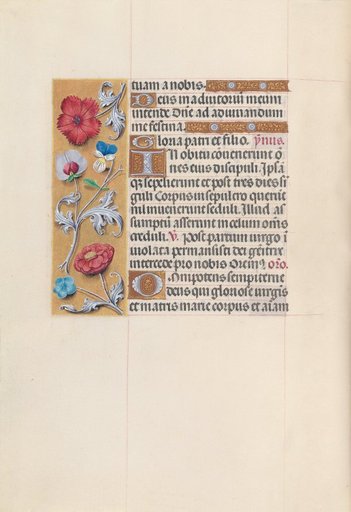 tuam a nobis.
Deus in adiutoriū meum
intende Dñe ad adiuuandum
me festina.
Gloria patri et filio. ymus.
In obitu conuenerunt õ
nes eius discipuli. Ipsā
q; sepelierunt et post tres dies si
guli Corpus in sepulcro querūt
nil inuenerunt seduli. Illud as
sumptū asserunt in celum om̄s
creduli. V. Post partum virgo i
uiolata permansisti dei genitrix
intercede pro nobis Orem⁹. oro.
Omnipotens sempiterne
deus qui gloriose virgis
et matris marie corpus et aīam